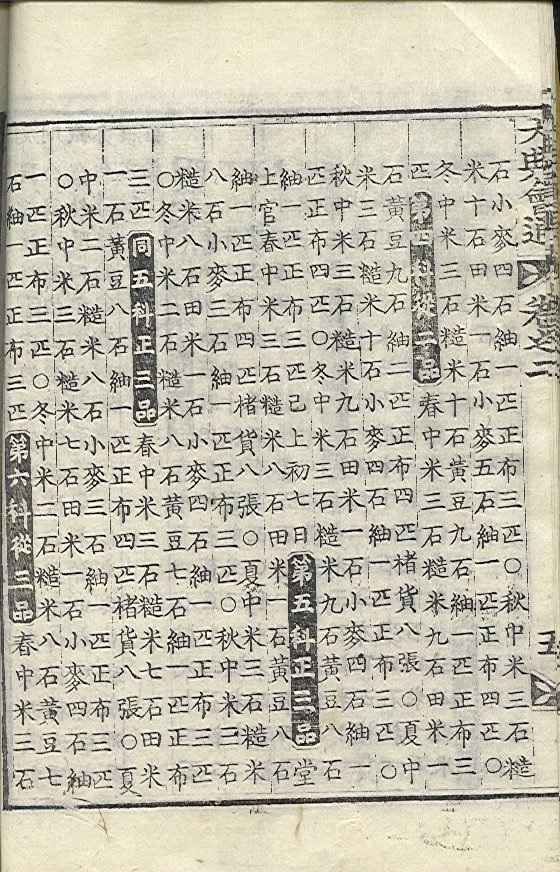 大典會通 卷之二 五
石小麥四石紬一匹正布三匹○秋中米三石糙
米十石田米一石小麥五石紬一匹正布四匹○
冬中米三石糙米十石黃豆九石紬一匹正布三
匹第四科從二品春中米三石糙米九石田米一
石黃豆九石紬二匹正布四匹楮貨八張○夏中
米三石糙米十石小麥四石紬一匹正布三匹○
秋中米三石糙米九石田米一石小麥四石紬一
匹正布四匹○冬中米三石糙米九石黃豆八石
紬一匹正布三匹已上初七日第五科正三品堂
上官春中米四石糙米八石田米一石黃豆八石
紬一匹正布四匹楮貨八張○夏中米三石糙米
八石小麥三石紬一匹正布三匹○秋中米三石
糙米八石田米一石小麥四石紬一匹正布三匹
○冬中米二石糙米八石黃豆七石紬一匹正布
三匹同五科正三品春中米三石糙米七石田米
一石黃豆八石紬一匹正布四匹楮貨八張○夏
中米二石糙米八石小麥三石紬一匹正布三匹
○秋中米三石糙米七石田米一石小麥四石紬
一匹正布三匹○冬中米二石糙米八石黃豆七
石紬一匹正布三匹第六科從三品春中米三石